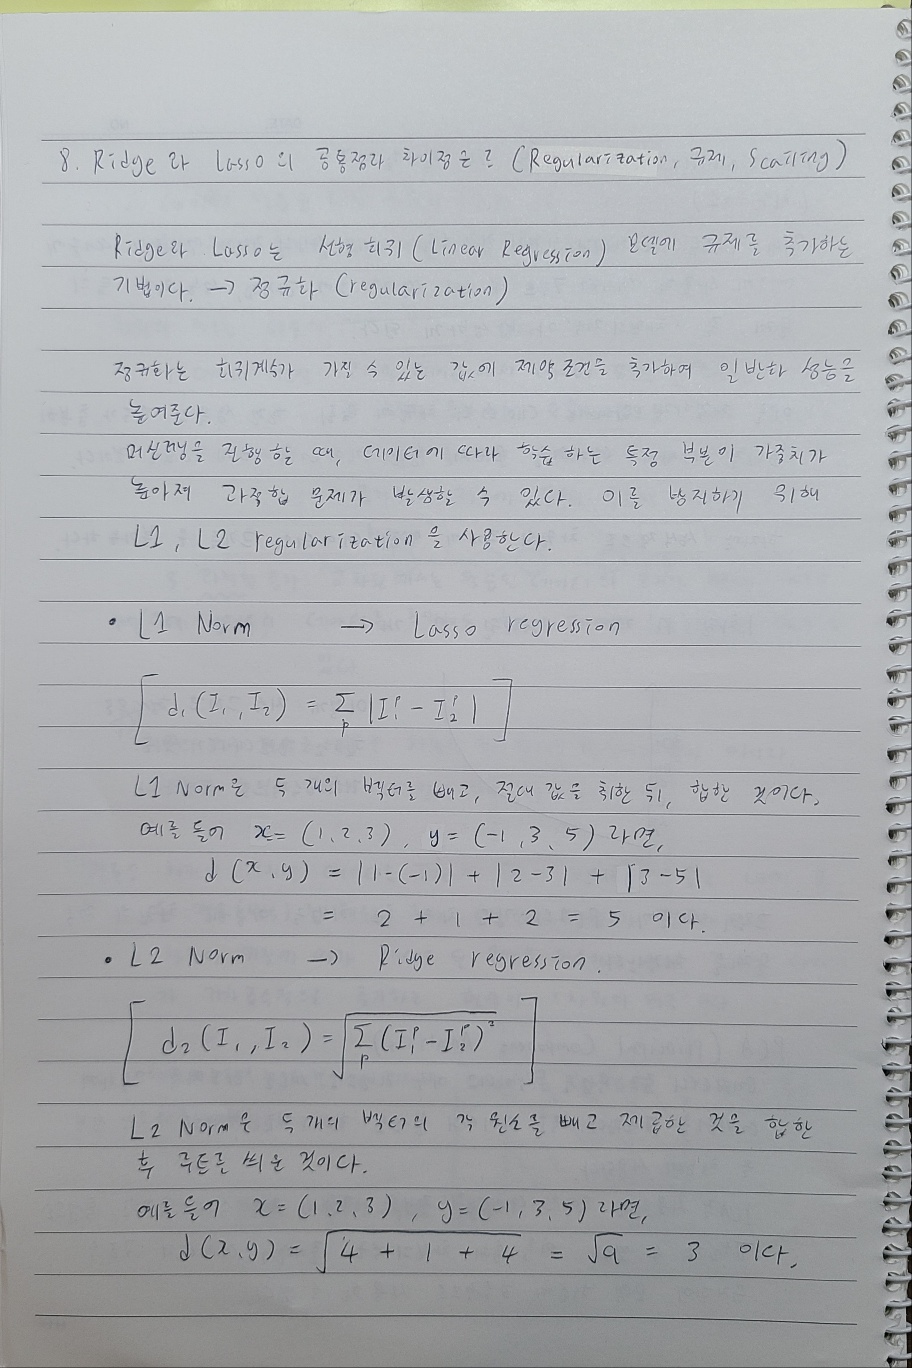 8. Ridge와 Lasso의 공통점과 차이점은? (Regularization, 규제, Scailing)
Ridge와 Lasso는 선형 회귀 (Linear Regression) 모델에 규제를 추가하는
기법이다. → 정규화 (regularization)
정규화는 회귀계수가 가질 수 있는 값에 제약조건을 추가하여 일반화 성능을
높여준다.
머신러닝을 진행할 때, 데이터에 따라 학습하는 특정 부분이 가중치가
높아져 과적합 문제가 발생할 수 있다. 이를 방지하기 위해
L1, L2 regularization을 사용한다.
• L1 Norm → Lasso regression
[ d₁(I₁, I₂) = Σₚ |I₁ᵖ - I₂ᵖ| ]
L1 Norm은 두 개의 벡터를 빼고, 절대 값을 취한 뒤, 합한 것이다.
예를 들어 x = (1, 2, 3), y = (-1, 3, 5) 라면,
d (x, y) = |1-(-1)| + |2-3| + |3-5|
= 2 + 1 + 2 = 5 이다.
• L2 Norm → Ridge regression.
[ d₂(I₁, I₂) = √Σₚ (I₁ᵖ - I₂ᵖ)² ]
L2 Norm은 두 개의 벡터의 각 원소를 빼고 제곱한 것을 합한
후 루트를 씌운 것이다.
예를 들어 x = (1, 2, 3), y = (-1, 3, 5) 라면,
d(x, y) = √4 + 1 + 4 = √9 = 3 이다.